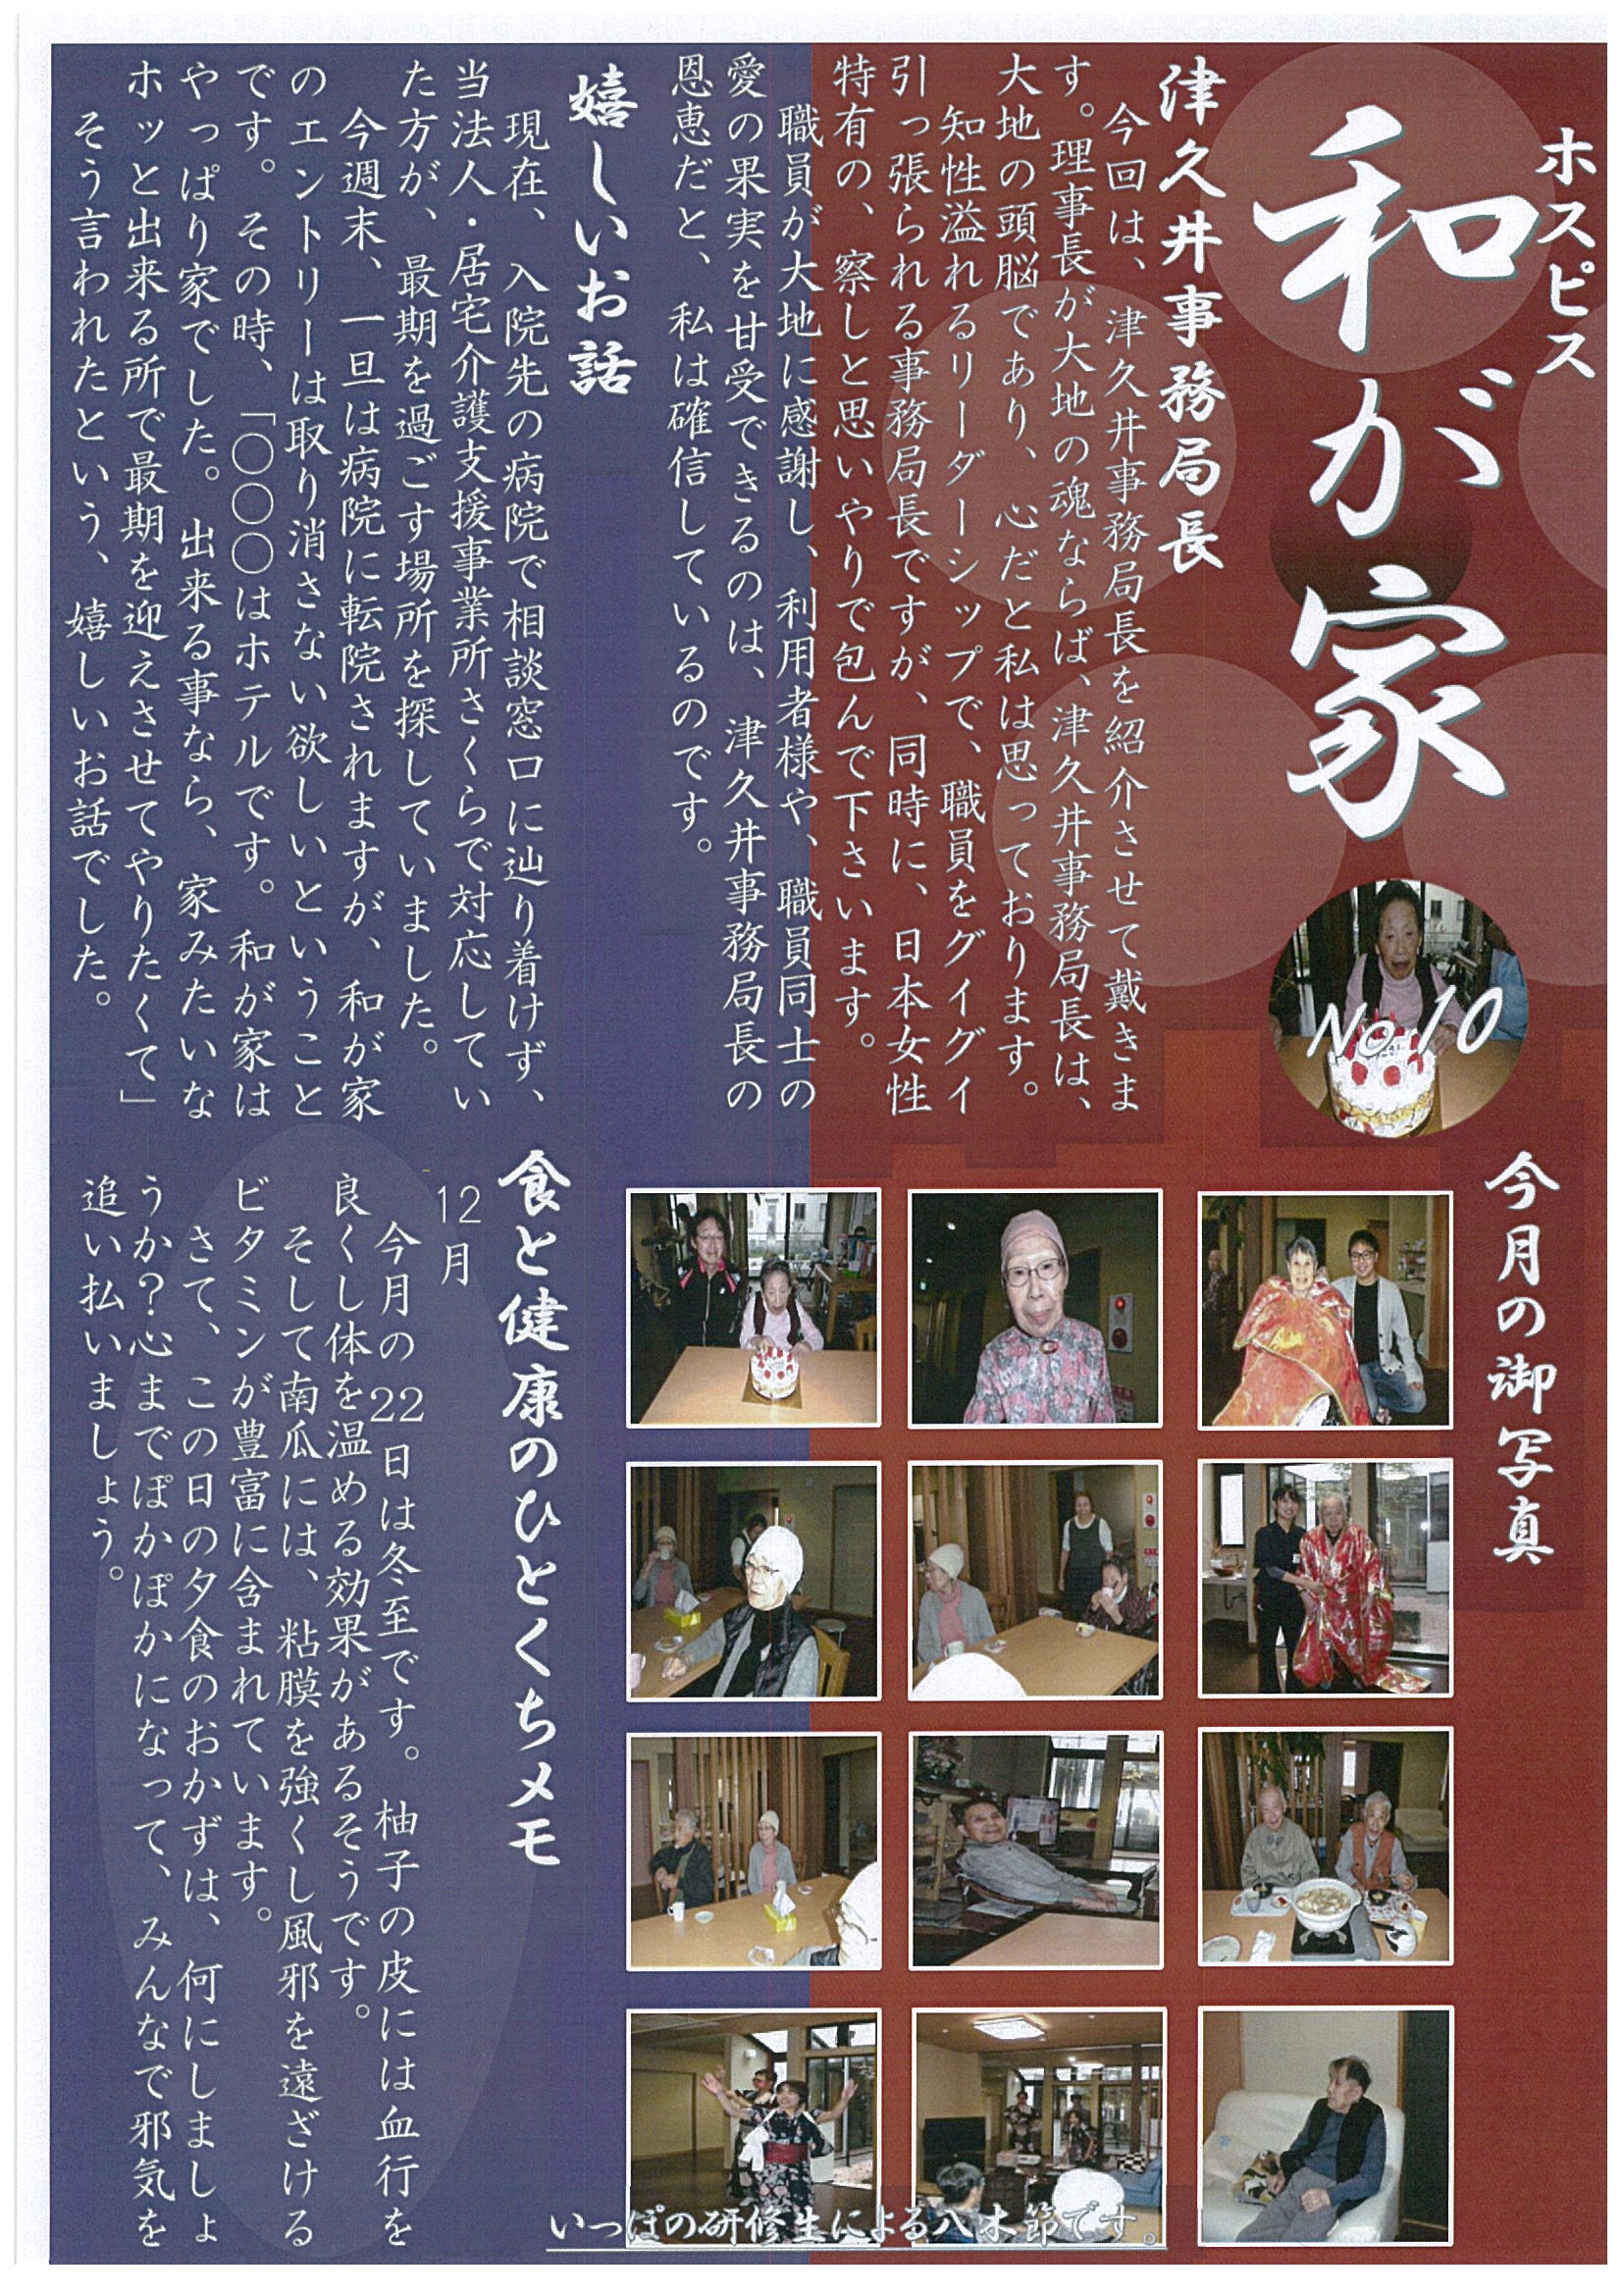 ホスピス
和が家
No.10
津久井事務局長
今回は、津久井事務局長を紹介させて戴きま
す。理事長が大地の魂ならば、津久井事務局長は、
大地の頭脳であり、心だと私は思っております。
知性溢れるリーダーシップで、職員をグイグイ
引っ張られる事務局長ですが、同時に、日本女性
特有の、察しと思いやりで包んで下さいます。
職員が大地に感謝し、利用者様や、職員同士の
愛の果実を甘受できるのは、津久井事務局長の
恩恵だと、私は確信しているのです。
嬉しいお話
現在、入院先の病院で相談窓口に辿り着けず、
当法人・居宅介護支援事業所さくらで対応してい
た方が、最期を過ごす場所を探していました。
今週末、一旦は病院に転院されますが、和が家
のエントリーは取り消さない欲しいということ
です。その時、「〇〇〇はホテルです。和が家は
やっぱり家でした。出来る事なら、家みたいな
ホッと出来る所で最期を迎えさせてやりたくて」
そう言われたという、嬉しいお話でした。
今月の御写真
いっぽの研修生による八木節です。
食と健康のひとくちメモ
12月
今月の22日は冬至です。柚子の皮には血行を
良くし体を温める効果があるそうです。
そして南瓜には、粘膜を強くし風邪を遠ざける
ビタミンが豊富に含まれています。
さて、この日の夕食のおかずは、何にしましょ
うか？心までぽかぽかになって、みんなで邪気を
追い払いましょう。